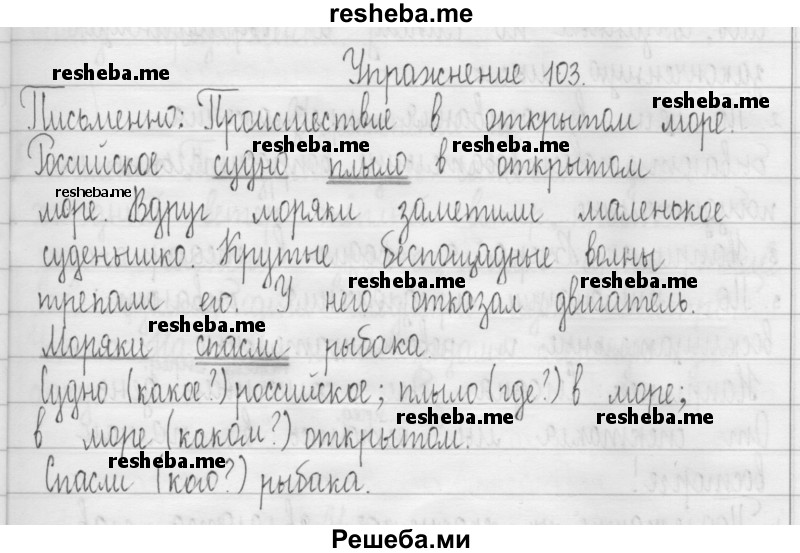 resheba.me
Упражнение 103.
resheba.me
Письменно: Происшествие в открытом море.
resheba.me
Российское судно плыло в открытом
resheba.me
resheba.me
resheba.me
море. Вдруг моряки заметили маленькое
суденышко. Крутые беспощадные волны
трепали его. У него отказал двигатель.
resheba.me
resheba.me
resheba.me
Моряки спасли рыбака.
Судно (какое?) российское; плыло (где?) в море;
resheba.me
resheba.me
в море (каком?) открытом.
resheba.me
Спасли (кого?) рыбака.
Решеба.ми